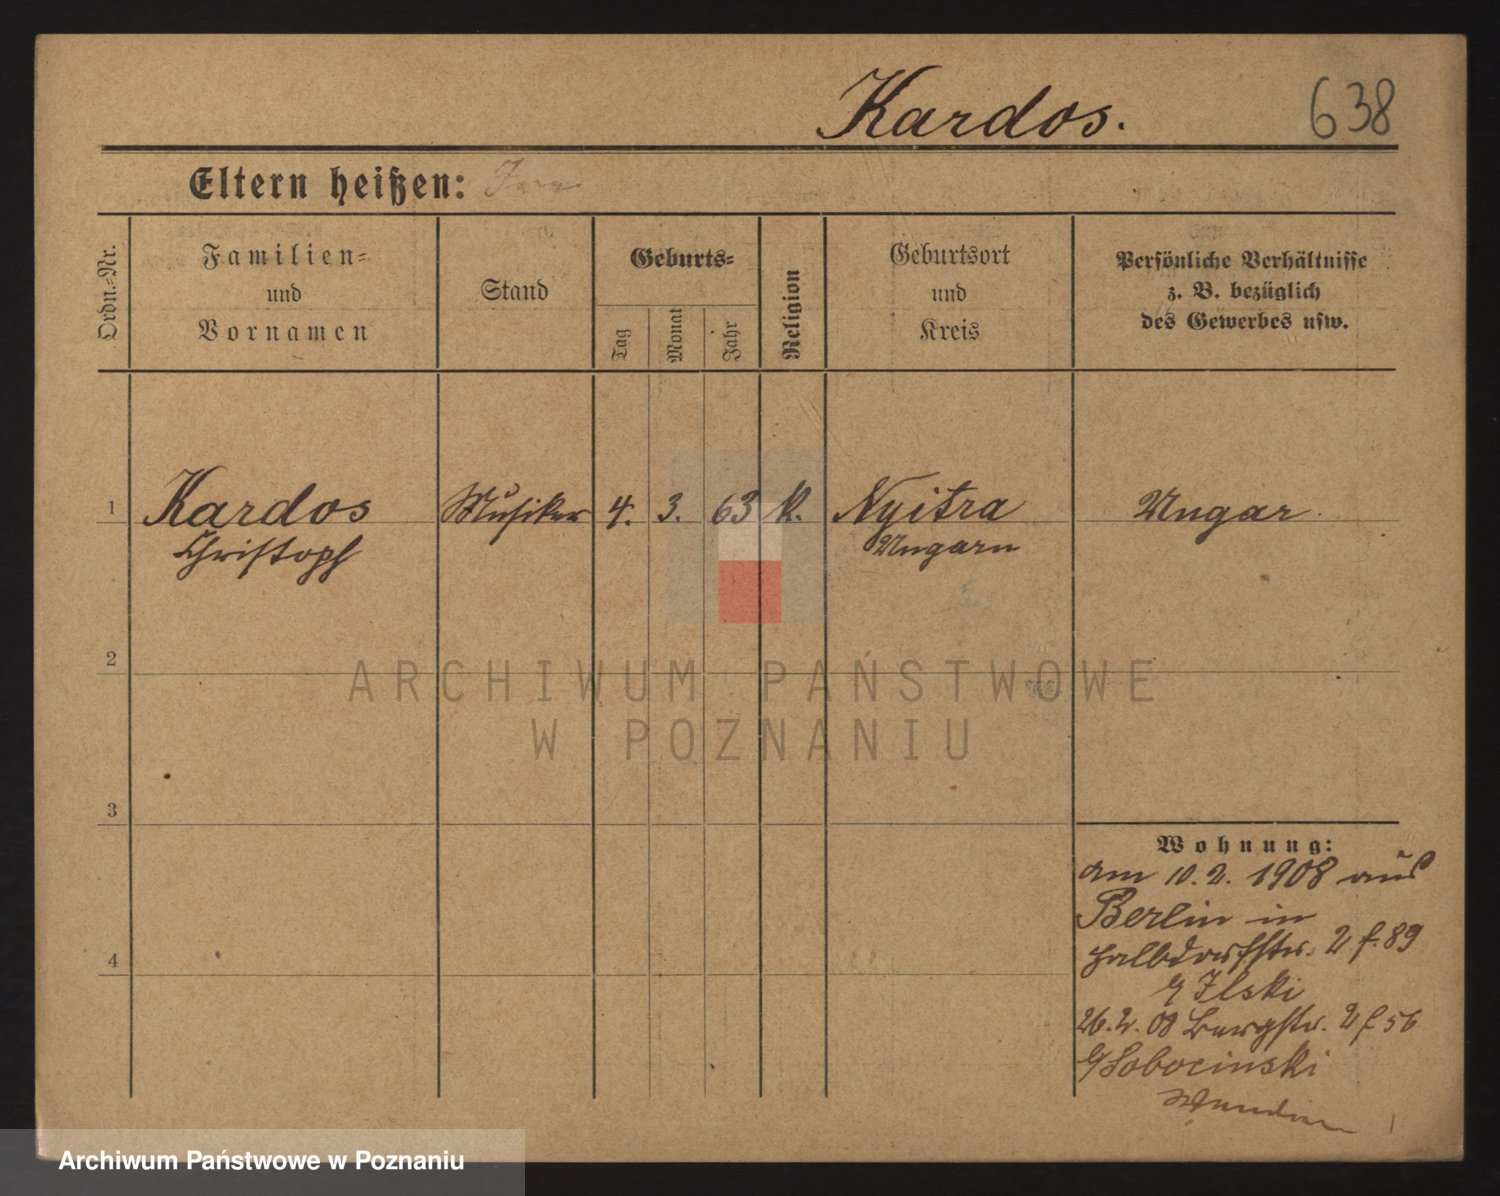 Kardos. 638
Eltern heißen:
Ordn.-Nr.
Familien-
und
Vornamen
Stand
Geburts-
Tag
Monat
Jahr
Religion
Geburtsort
und
Kreis
Persönliche Verhältnisse
z. B. bezüglich
des Gewerbes usw.
1 Kardos Musiker 4. 3. 63 K. Nyitra Ungar
Christoph Ungarn
2
ARCHIWUM PAŃSTWOWE
W POZNANIU
3
Wohnung:
am 10.2. 1908 aus
Berlin in
Halbdorfstr. 2 f. 89
Ilski
4
26.2. 08 Bergstr. 2 f 56
Sobocinski
Archiwum Państwowe w Poznaniu